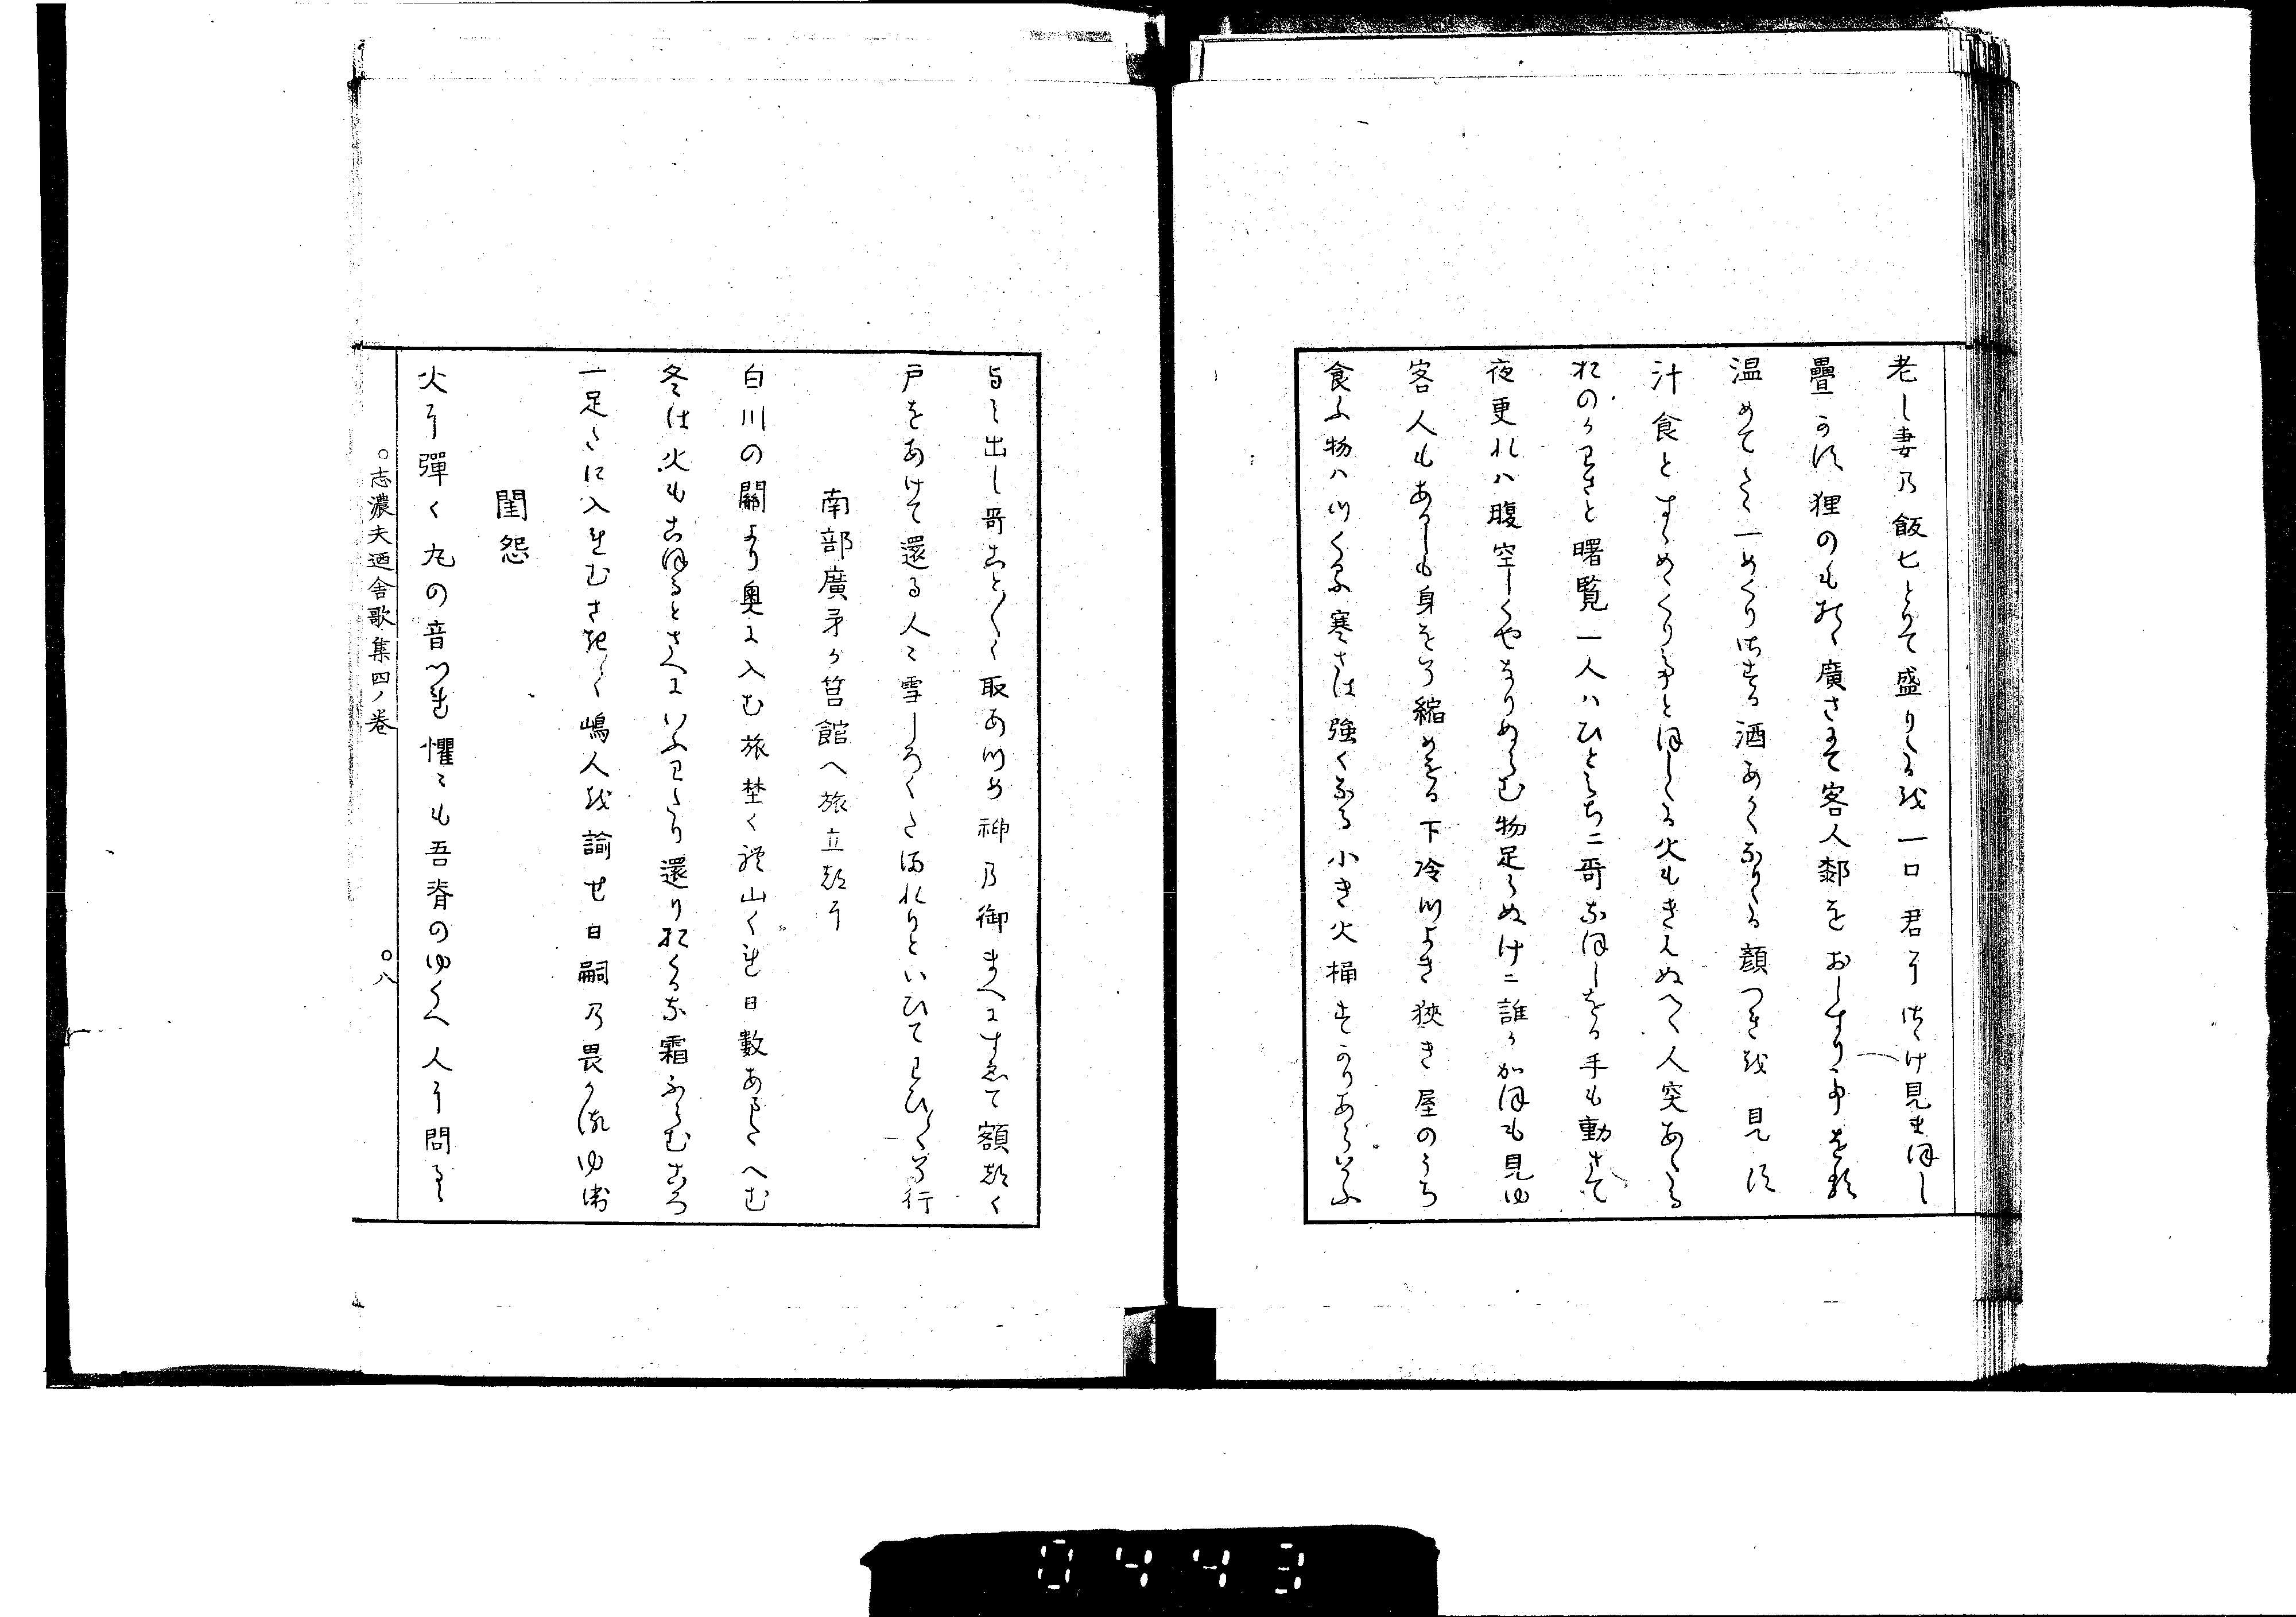 老し妻乃飯匕とりて盛りくる越一口君尓さゝけ見まほし
疊かす狸のものゝ廣さもて客人鄰をおし
温めてたゝ一めくりせさる酒あかくなりくる顔つき越見す
汁食とすゝめめくり弖とほしくる火もきえぬへく人突あたる
おのかわさと曙覧一人ハひとみちニ哥なほしをる手も動さて
夜更れハ腹空しくやなりぬらむ物足らぬけニ誰か加ほも見ゆ
客人もあるしも身をそ縮めをる下冷つよき狹き屋のうち
食ふ物ハつくる寒さは強くなる小き火桶すかりあらそふ
よミ出し哥こと〳〵く取あつめ神乃御まへにすゑて額つく
戸をあけて還る人ミ雪しろくたまれりといひてわひ〳〵そ行
南部廣矛か筥館へ旅立つ尓
白川の關より奥に入む旅埜くれ山くれ日數あまたへむ
冬は火もこほるとさへにいふわたり還りおくるな霜ふらむころ
一足たに入れむさきく嶋人越諭せ日嗣乃畏かるゆゑ
閨怨
火尓彈く丸の音つれ懼ミも吾脊のゆくへ人尓問るゝ
○志濃夫廼舎歌集四ノ巻 ○八
0443